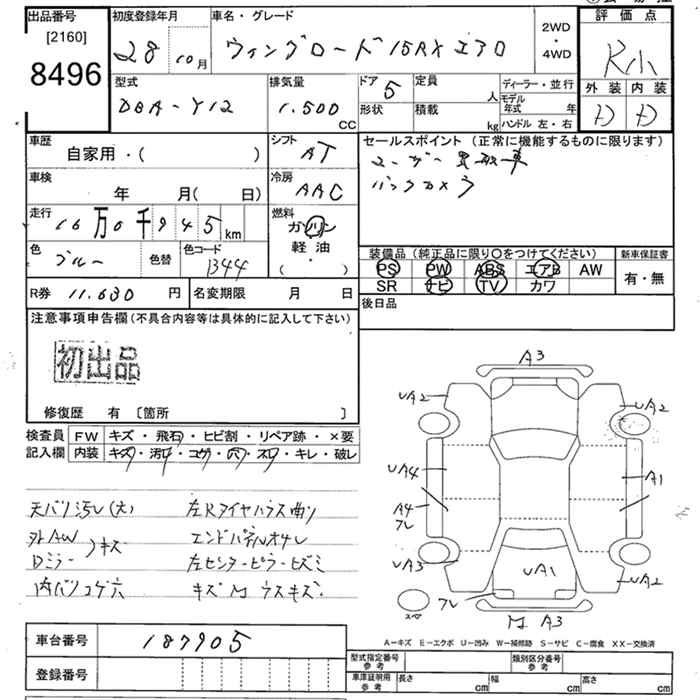 出品番号 初度登録年月 車名・グレード 2WD・4WD 評価点
[2160]
8496 28 10月 ウィングロード 15RX エアロ R小
外装 内装
D D
型式 排気量 ドア 5 定員 人 ディーラー・並行
DBA-Y12 1.500 CC 形状 積載 kg モデル年式 年
ハンドル 左・右
車歴 シフト セールスポイント (正常に機能するものに限ります)
自家用・( ) AT ユーザー買取車
車検 冷房 バックカメラ
年 月(日) AAC
走行 燃料
10万0千945km ガソリン
軽油
・( )
色 ブルー 色替 色コード B44
装備品 (純正品に限り○をつけてください) 新車保証書
PS PW ABS エアB AW 有・無
SR ナビ TV カワ
R券 11.630 円 名変期限 月 日 後日品
注意事項申告欄(不具合内容等は具体的に記入して下さい)
初出品
修復歴 有 〔箇所 〕
検査員 FW キズ・飛石・ヒビ割・リペア跡・×要
記入欄 内装 キズ・汚れ・コゲ・穴・スレ・キレ・破レ
天バリ汚レ(大) 左Rタイヤハウス曲り
外AW キズ エンドパネルオサレ
Dミラー 左センターピラーヒズミ
内バリコゲ穴 キズ M ウスキズ
A3
UA2 UA2
UA4 A1
A4
フレ
UA3 UA1 UA2
フレ
スペ M A3
A-キズ E-エクボ U-凹み W-補修跡 S-サビ C-腐食 XX-交換済
車台番号 187905
登録番号
型式指定番号 参考 類別区分番号 参考
車庫証明用 参考 長さ cm 幅 cm 高さ cm